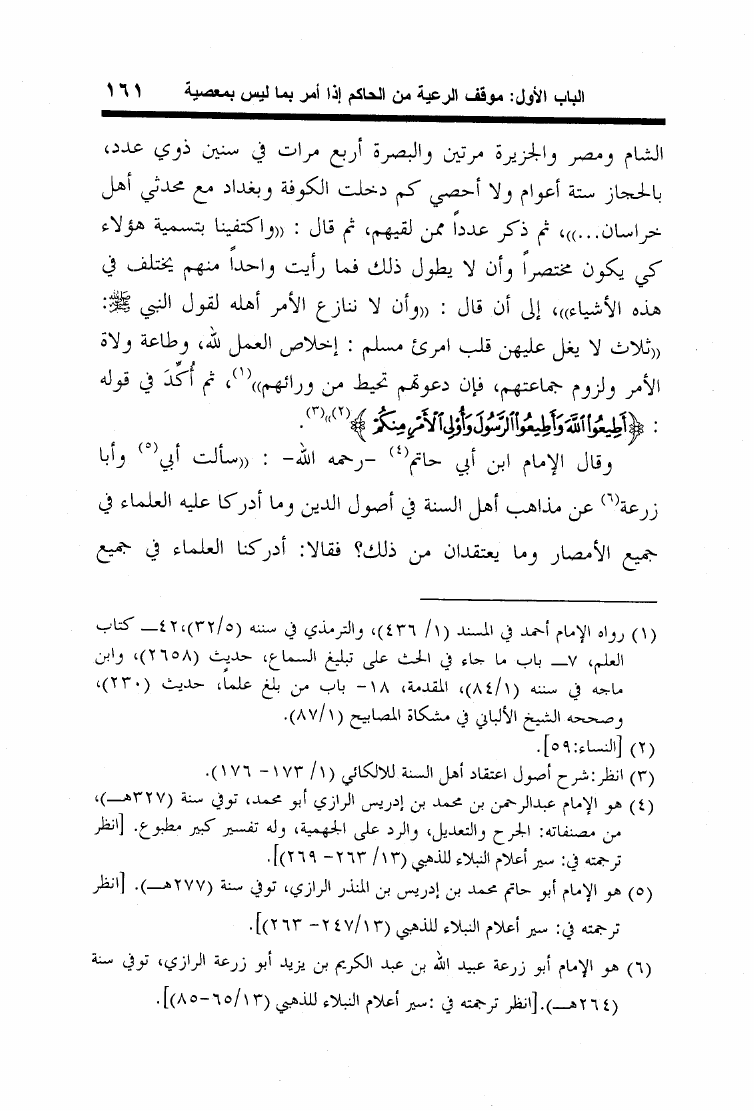 الباب الأول: موقف الرعية من الحاكم إذا أمر بما ليس بمعصية ١٦١
الشام ومصر والجزيرة مرتين والبصرة أربع مرات في سنين ذوي عدد،
بالحجاز ستة أعوام ولا أحصي كم دخلت الكوفة وبغداد مع محدثي أهل
خراسان...))، ثم ذكر عدداً ممن لقيهم، ثم قال : ((واكتفينا بتسمية هؤلاء
كي يكون مختصراً وأن لا يطول ذلك فما رأيت واحداً منهم يختلف في
هذه الأشياء))، إلى أن قال : ((وأن لا ننازع الأمر أهله لقول النبي ﷺ:
((ثلاث لا يغل عليهن قلب امرئ مسلم : إخلاص العمل لله، وطاعة ولاة
الأمر ولزوم جماعتهم، فإن دعوتهم تحيط من ورائهم))(١)، ثم أُكِّدَ في قوله
: ﴿أَطِيعُوا۟ ٱللَّهَ وَأَطِيعُوا۟ ٱلرَّسُولَ وَأُو۟لِى ٱلْأَمْرِ مِنكُمْ ﴾(٢)))(٣).
وقال الإمام ابن أبي حاتم(٤) -رحمه الله- : ((سألت أبي(٥) وأبا
زرعة(٦) عن مذاهب أهل السنة في أصول الدين وما أدركا عليه العلماء في
جميع الأمصار وما يعتقدان من ذلك؟ فقالا: أدركنا العلماء في جميع
(١) رواه الإمام أحمد في المسند (١/ ٤٣٦)، والترمذي في سننه (٣٢/٥)،٤٢ــ كتاب
العلم، ٧ــ باب ما جاء في الحث على تبليغ السماع، حديث (٢٦٥٨)، وابن
ماجه في سننه (٨٤/١)، المقدمة، ١٨- باب من بلغ علماً، حديث (٢٣٠)،
وصححه الشيخ الألباني في مشكاة المصابيح (٨٧/١).
(٢) [النساء:٥٩].
(٣) انظر:شرح أصول اعتقاد أهل السنة للالكائي (١/ ١٧٣- ١٧٦).
(٤) هو الإمام عبدالرحمن بن محمد بن إدريس الرازي أبو محمد، توفي سنة (٣٢٧هــ)،
من مصنفاته: الجرح والتعديل، والرد على الجهمية، وله تفسير كبير مطبوع. [انظر
ترجمته في: سير أعلام النبلاء للذهبي (١٣/ ٢٦٣- ٢٦٩)].
(٥) هو الإمام أبو حاتم محمد بن إدريس بن المنذر الرازي، توفي سنة (٢٧٧هــ). [انظر
ترجمته في: سير أعلام النبلاء للذهبي (٢٤٧/١٣- ٢٦٣)].
(٦) هو الإمام أبو زرعة عبيد الله بن عبد الكريم بن يزيد أبو زرعة الرازي، توفي سنة
(٢٦٤هــ).[انظر ترجمته في :سير أعلام النبلاء للذهبي (٦٥/١٣-٨٥)].